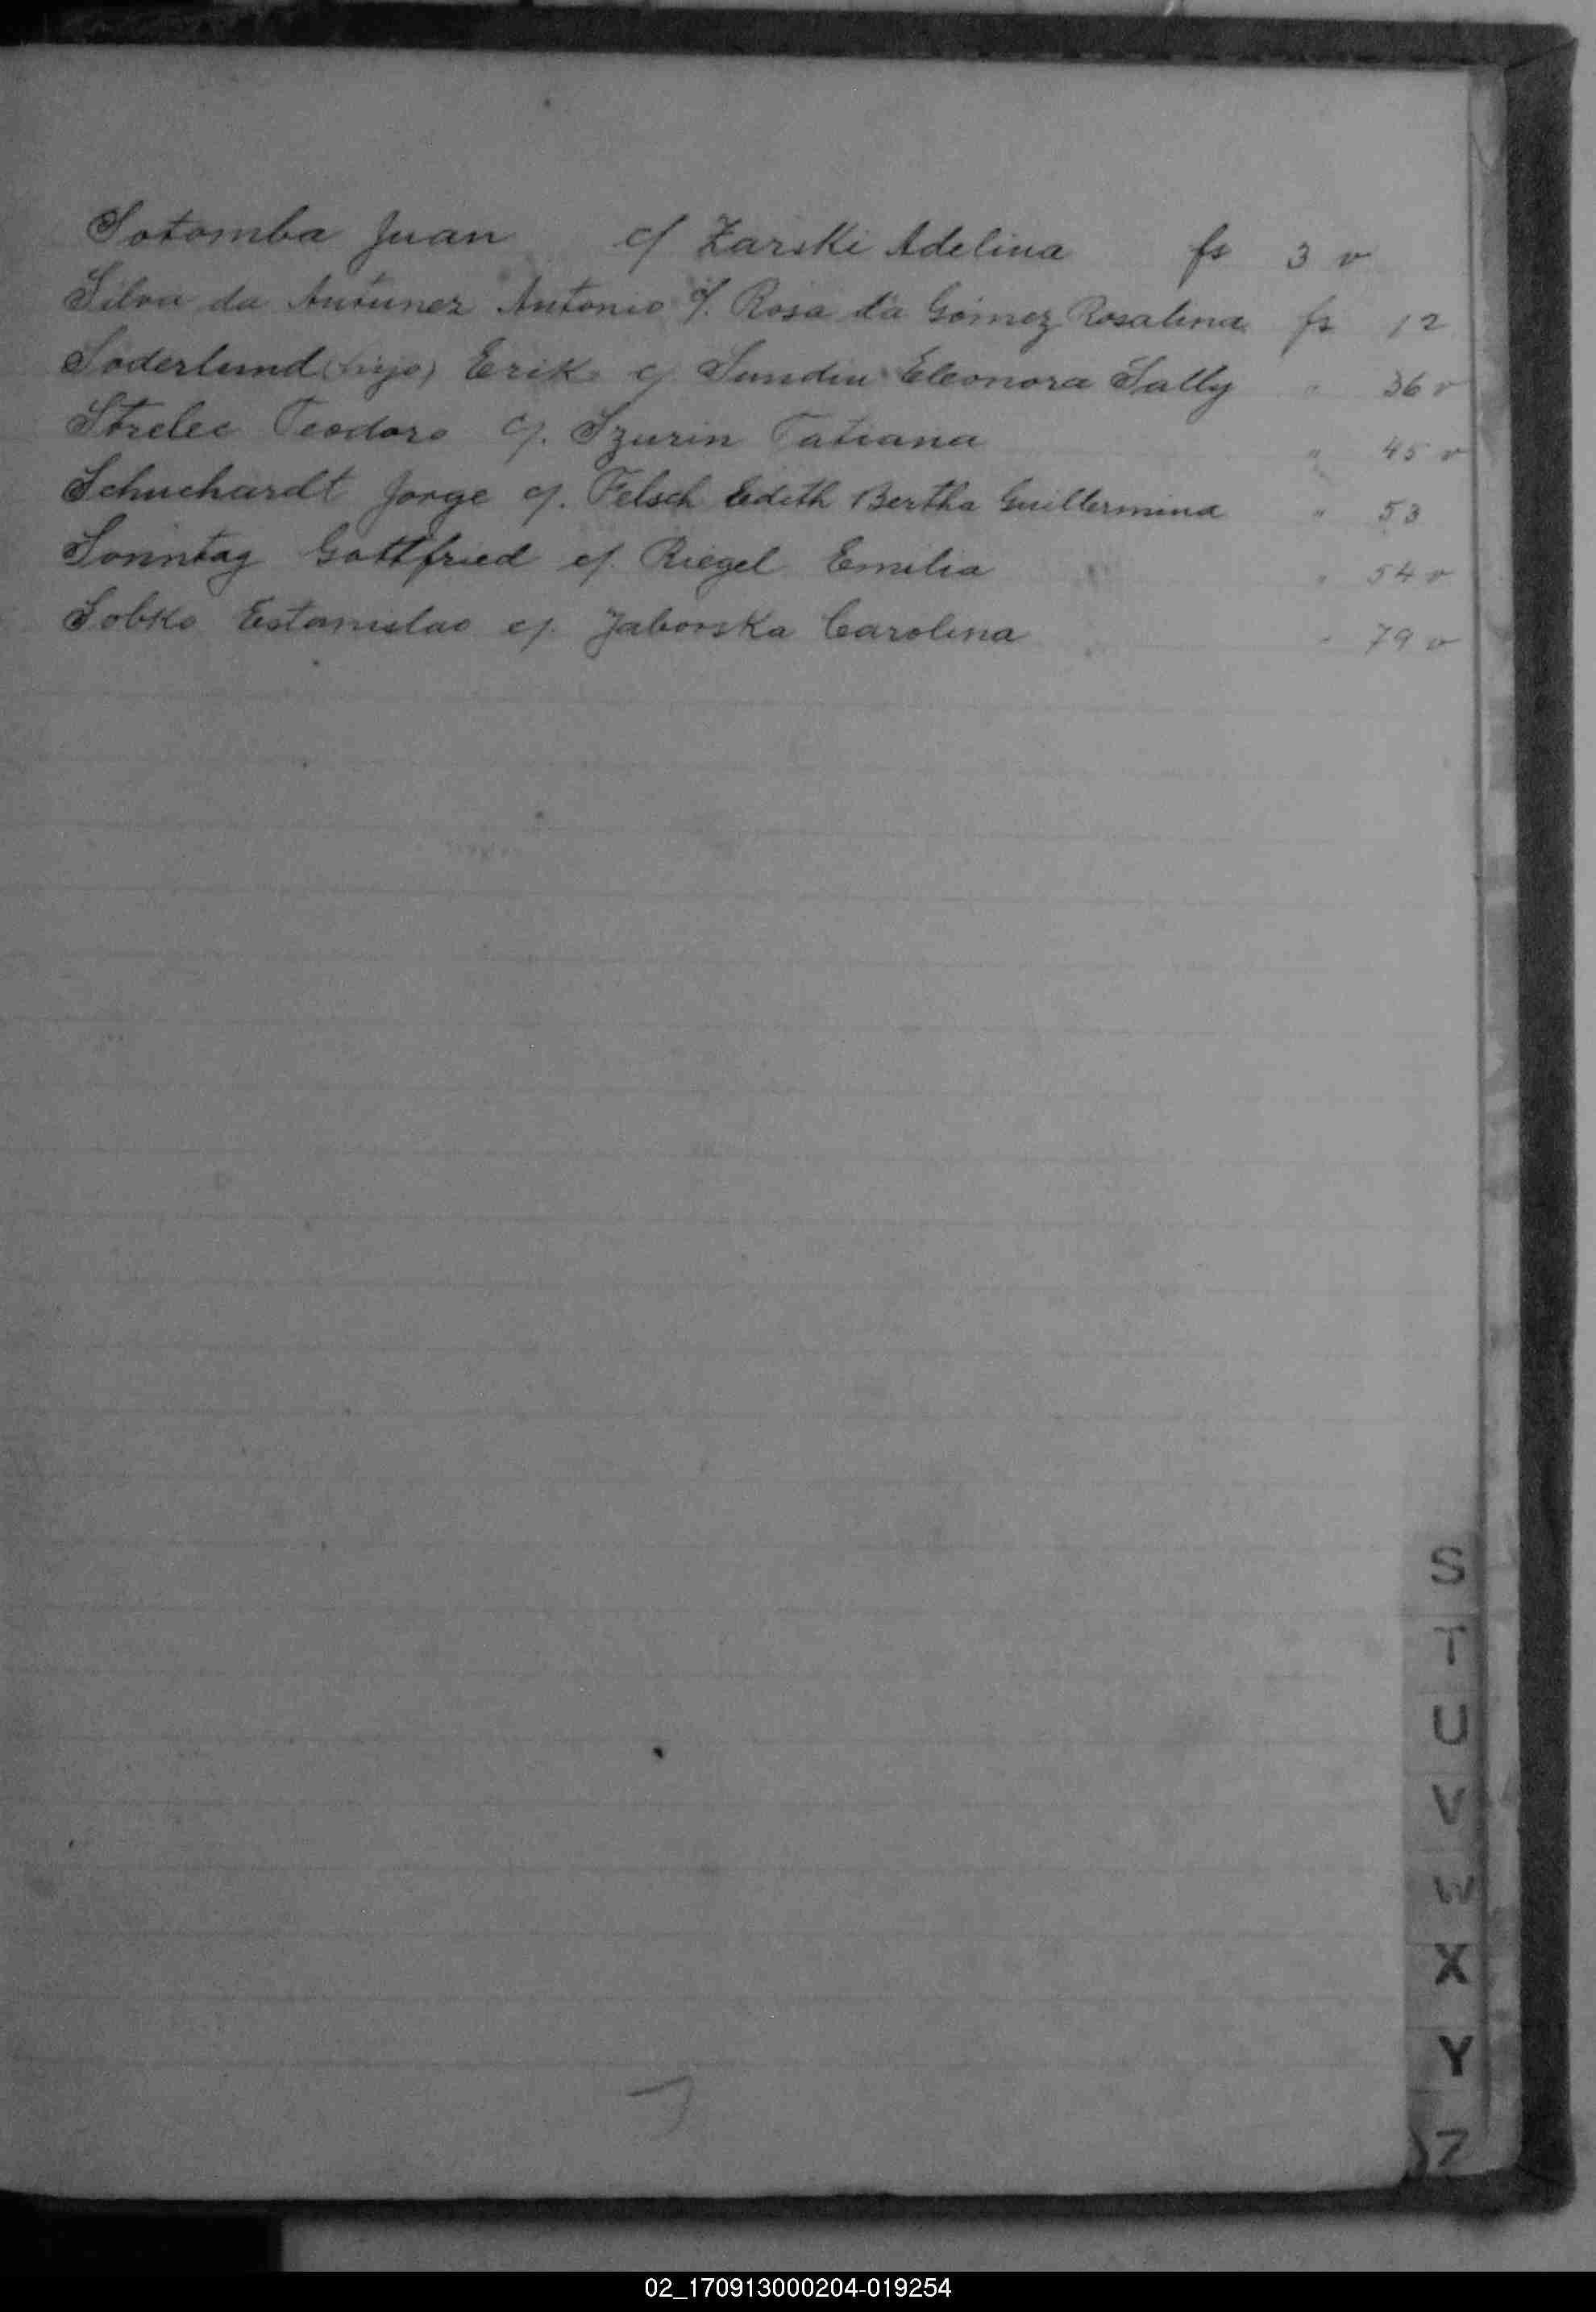 Sotomba Juan c/ Zarski Adelina fs 3 v
Silva da Antunez Antonio c/. Rosa da Gómez Rosalina fs 12
Soderlund (hijo) Erik c/ Sundin Eleonora Sally " 36 v
Strelec Teodoro c/. Szurin Tatiana " 45 v
Schuchardt Jorge c/. Felsch Edith Bertha Guillermina " 53
Sonntag Gottfried c/. Riegel Emilia " 54 v
Sobko Estanislao c/. Jaborska Carolina " 79 v
S
T
U
V
W
X
Y
Z
02_170913000204-019254